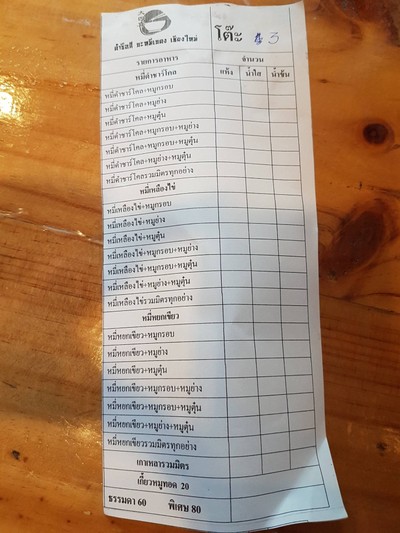 ตำรับสี่ บะหมี่แดง เชียงใหม่
โต๊ะ 3
รายการอาหาร จำนวน
หมี่ดำชาร์โคล แห้ง น้ำใส น้ำข้น
หมี่ดำชาร์โคล+หมูกรอบ
หมี่ดำชาร์โคล+หมูย่าง
หมี่ดำชาร์โคล+หมูตุ๋น
หมี่ดำชาร์โคล+หมูกรอบ+หมูย่าง
หมี่ดำชาร์โคล+หมูกรอบ+หมูตุ๋น
หมี่ดำชาร์โคล+หมูย่าง+หมูตุ๋น
หมี่ดำชาร์โคลรวมมิตรทุกอย่าง
หมี่เหลืองไข่
หมี่เหลืองไข่+หมูกรอบ
หมี่เหลืองไข่+หมูย่าง
หมี่เหลืองไข่+หมูตุ๋น
หมี่เหลืองไข่+หมูกรอบ+หมูย่าง
หมี่เหลืองไข่+หมูกรอบ+หมูตุ๋น
หมี่เหลืองไข่+หมูย่าง+หมูตุ๋น
หมี่เหลืองไข่รวมมิตรทุกอย่าง
หมี่หยกเขียว
หมี่หยกเขียว+หมูกรอบ
หมี่หยกเขียว+หมูย่าง
หมี่หยกเขียว+หมูตุ๋น
หมี่หยกเขียว+หมูกรอบ+หมูย่าง
หมี่หยกเขียว+หมูกรอบ+หมูตุ๋น
หมี่หยกเขียว+หมูย่าง+หมูตุ๋น
หมี่หยกเขียวรวมมิตรทุกอย่าง
เกาเหลารวมมิตร
เกี๊ยวหมูทอด 20
ธรรมดา 60 พิเศษ 80